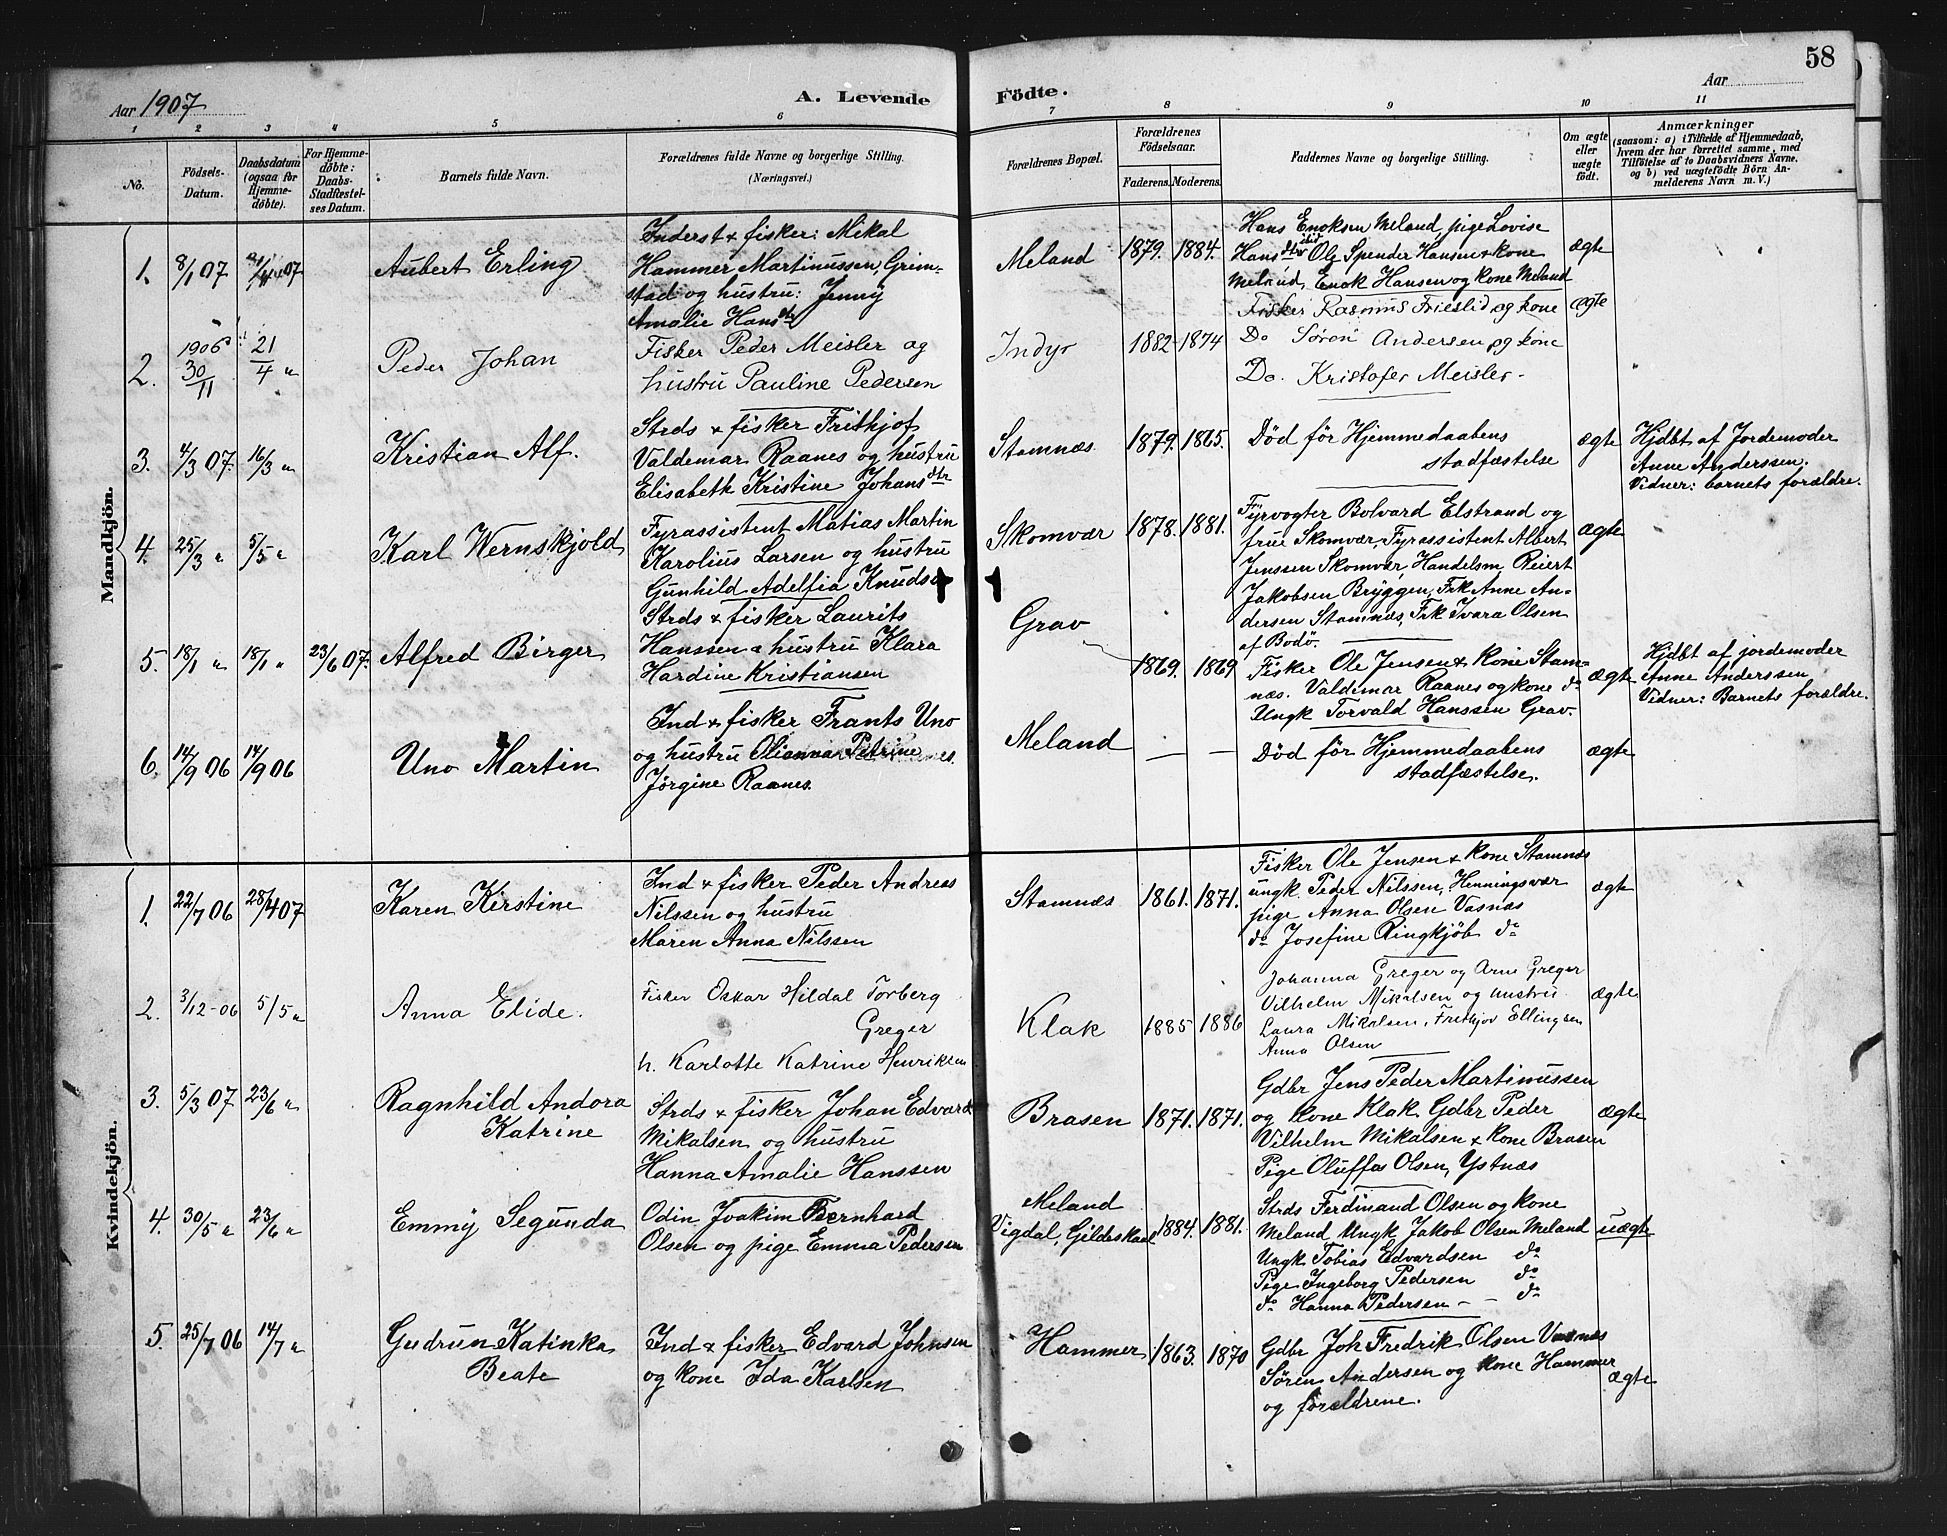 58
Aar 1907
A. Levende Fødte.
Aar
1 2 3 4 5 6 7 8 9 10 11
No.
Fødsels-Datum.
Daabsdatum (ogsaa for Hjemme-døbte).
For Hjemme-døbte: Daabs-Stadfæstel-ses Datum.
Barnets fulde Navn.
Forældrenes fulde Navne og borgerlige Stilling. (Næringsvei.)
Forældrenes Bopæl.
Forældrenes Fødselsaar.
Faderens. Moderens.
Faddernes Navne og borgerlige Stilling.
Om ægte eller uægte født.
Anmærkninger
(saasom: a) i Tilfælde af Hjemmedaab, hvem der har forrettet samme, med Tilføielse af to Daabsvidners Navne, og b) ved uægtefødte Børn An-melderens Navn m. V.)
Mandkjön.
1. 8/1 07 07
Aubert Erling
Inderst & fisker: Mikal
Hammer Martinussen, Grim-
stad og hustru: Jenny
Amalie Hansdtr
Meland 1879. 1884.
Hans Enoksen Meland, pige Lovise
Hansdtr ibid Ole Spender Hansen & kone
Meland, Enok Hansen og kone Meland
ægte
2. 1906 30/11 21/4 "
Peder Johan
Fisker Peder Meisler og
hustru Pauline Pedersen
Indyr 1882 - 1874
Fisker Rasmus Frieslid og kone
Do Søren Andersen og kone
Do. Kristofer Meisler.
ægte
3. 4/3 07. 16/3 "
Kristian Alf.
Strds & fisker Frithjof
Valdemar Raanes og hustru
Elisabeth Kristine Johansdtr
Stamnæs 1879. 1865.
Död för Hjemmedaabens
stadfæstelse
ægte
Hjdbt af Jordemoder
Anne Anderssen.
Vidner: barnets forældre.
4. 25/3 " 5/5 "
Karl Wernskjold
Fyrassistent Matias Martin
Karolius Larsen og hustru
Gunhild Adelfia Knudsen
Skomvær 1878. 1881.
Fyrvogter Bolvard Elstrand og
frue Skomvær, Fyrassistent Albert
Jenssen Skomvær, Handelsm Reiert
Jakobsen Bryggen, Frk Anne An-
dersen Stamnæs, Frk Ivara Olsen
af Bodö.
ægte
5. 18/1 " 18/1 " 23/6 07.
Alfred Birger
Strds & fisker Laurits
Hanssen & hustru Klara
Hardine Kristiansen
Grav 1869. 1869
Fisker Ole Jensen & kone Stam-
næs. Valdemar Raanes og kone do
Ungk Torvald Hanssen Grav.
ægte
Hjdbt af jordemoder
Anne Anderssen
Vidner: Barnets forældre.
6. 14/9 06 14/9 06
Uno Martin
Ind & fisker Frants Uno
og hustru Olianna Petrine
Jørgine Raanes.
Meland — —
Död för Hjemmedaabens
stadfæstelse.
ægte
Kvindekjön.
1. 22/7 06 28/4 07
Karen Kirstine
Ind & fisker Peder Andreas
Nilssen og hustru
Maren Anna Nilssen
Stamnæs 1861. 1871.
Fisker Ole Jensen & kone Stamnæs
ungk Peder Nilssen, Henningsvær
pige Anna Olsen Vasnæs
do Josefine Ringkjöb do
ægte
2. 3/12-06 5/5 "
Anna Elide.
Fisker Oskar Hildal Torberg
Greger
h. Karlotte Katrine Henriksen
Klak 1885 1886
Johanna Greger og Arne Greger
Vilhelm Mikalsen og hustru
Laura Mikalsen, Frithjov Ellingsen
Anna Olsen
ægte
3. 5/3 07 23/6 "
Ragnhild Andora
Katrine
Strds & fisker Johan Edvard
Mikalsen og hustru
Hanna Amalie Hanssen
Brasen 1871. 1871.
Gdbr Jens Peder Martinussen
og kone Klak Gdbr Peder
Vilhelm Mikalsen & kone Brasen
Pige Oluffas Olsen, Ystnæs
ægte
4. 30/5 " 23/6 "
Emmy Segunda
Odin Joakim Bernhard
Olsen og pige Emma Pedersen
Meland
Vigdal, Gildeskaal 1884. 1881.
Strds Ferdinand Olsen og kone
Meland Ungk Jakob Olsen Meland
Ungk Tobias Edvardsen do
Pige Ingeborg Pedersen do
do Hanna Pedersen - - do
uægte
5. 25/7 06 14/7 "
Gudrun Katinka
Beate
Ind & fisker Edvard Johnsen
og kone Ida Karlsen
Hammer 1863. 1870
Gdbr Joh Fredrik Olsen Vasnæs
Søren Andersen og kone Hammer
og forældrene.
ægte